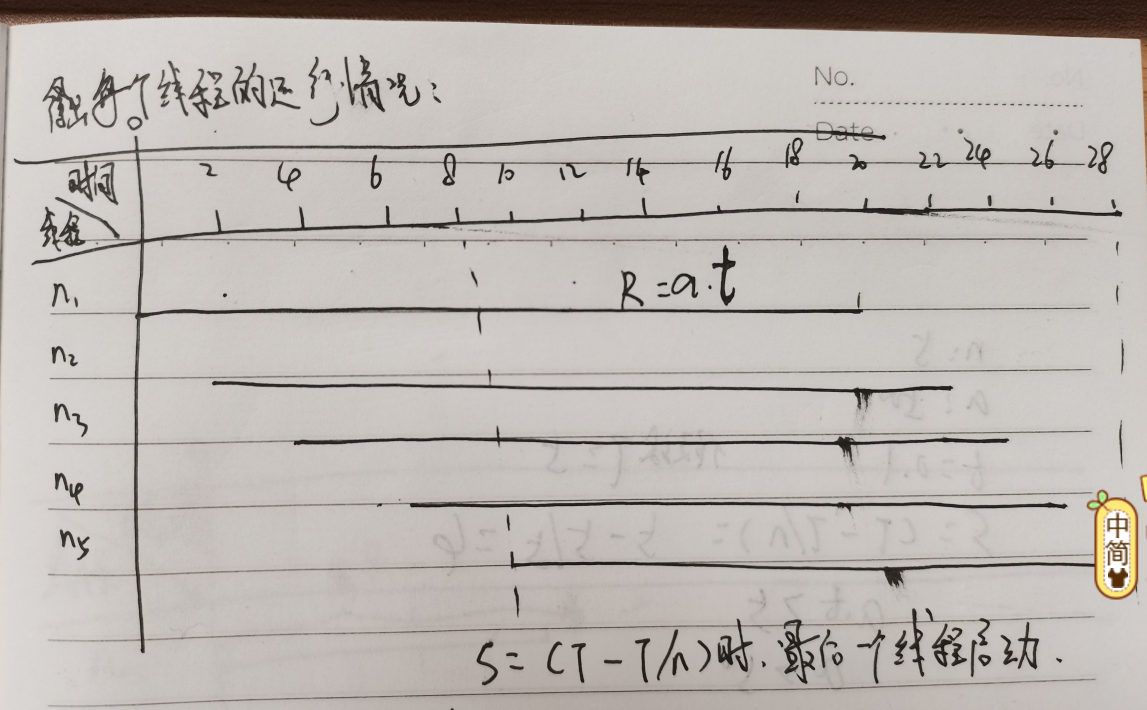 画出每个线程的运行情况：
No.
Date
0
时间 2 4 6 8 10 12 14 16 18 20 22 24 26 28
线程
n1 R=a.t
n2
n3
n4
n5
S=(T-T/n)时.最后一个线程启动.
中
简